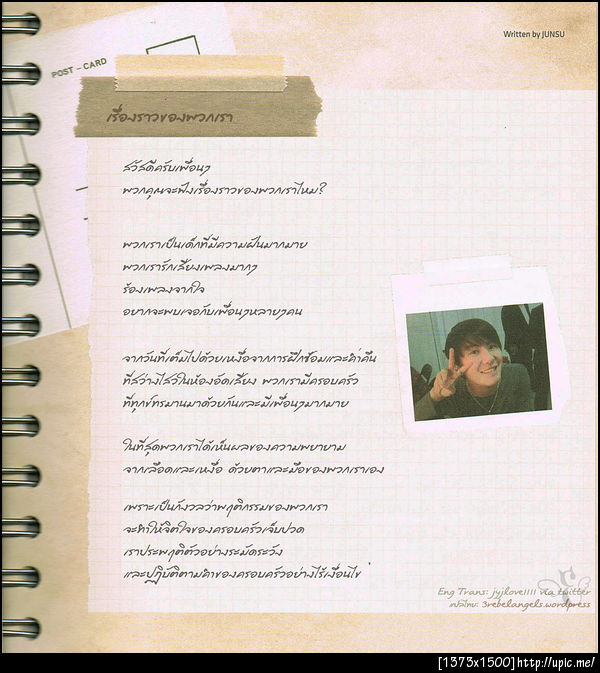 Written by JUNSU
POST - CARD
เรื่องราวของพวกเรา
สวัสดีครับเพื่อนๆ
พวกคุณจะฟังเรื่องราวของพวกเราไหม?
พวกเราเป็นเด็กที่มีความฝันมากมาย
พวกเรารักเสียงเพลงมากๆ
ร้องเพลงจากใจ
อยากจะพบเจอกับเพื่อนๆหลายๆคน
จากวันที่เต็มไปด้วยเหงื่อจากการฝึกซ้อมและค่ำคืน
ที่สว่างไสวในห้องอัดเสียง พวกเรามีครอบครัว
ที่ทุกข์ทรมานมาด้วยกันและมีเพื่อนๆมากมาย
ในที่สุดพวกเราได้เห็นผลของความพยายาม
จากเลือดและเหงื่อ ด้วยตาและมือของพวกเราเอง
เพราะเป็นกังวลว่าพฤติกรรมของพวกเรา
จะทำให้จิตใจของครอบครัวเจ็บปวด
เราประพฤติตัวอย่างระมัดระวัง
และปฏิบัติตามคำของครอบครัวอย่างไร้เงื่อนไข
Eng Trans: jyjlove1111 via twitter
แปลไทย: 3rebelangels.wordpress
[1373x1500] http://upic.me/